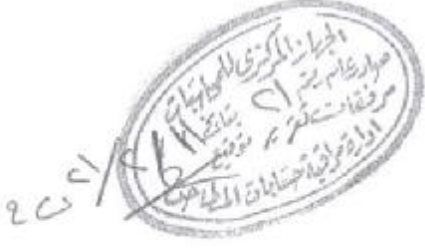 الجهاز المركزى للمحاسبات
صادر عام رقم ٢١
بتاريخ
مرفقات تقرير
توقيع
ادارة مراقبة حسابات المطاحن